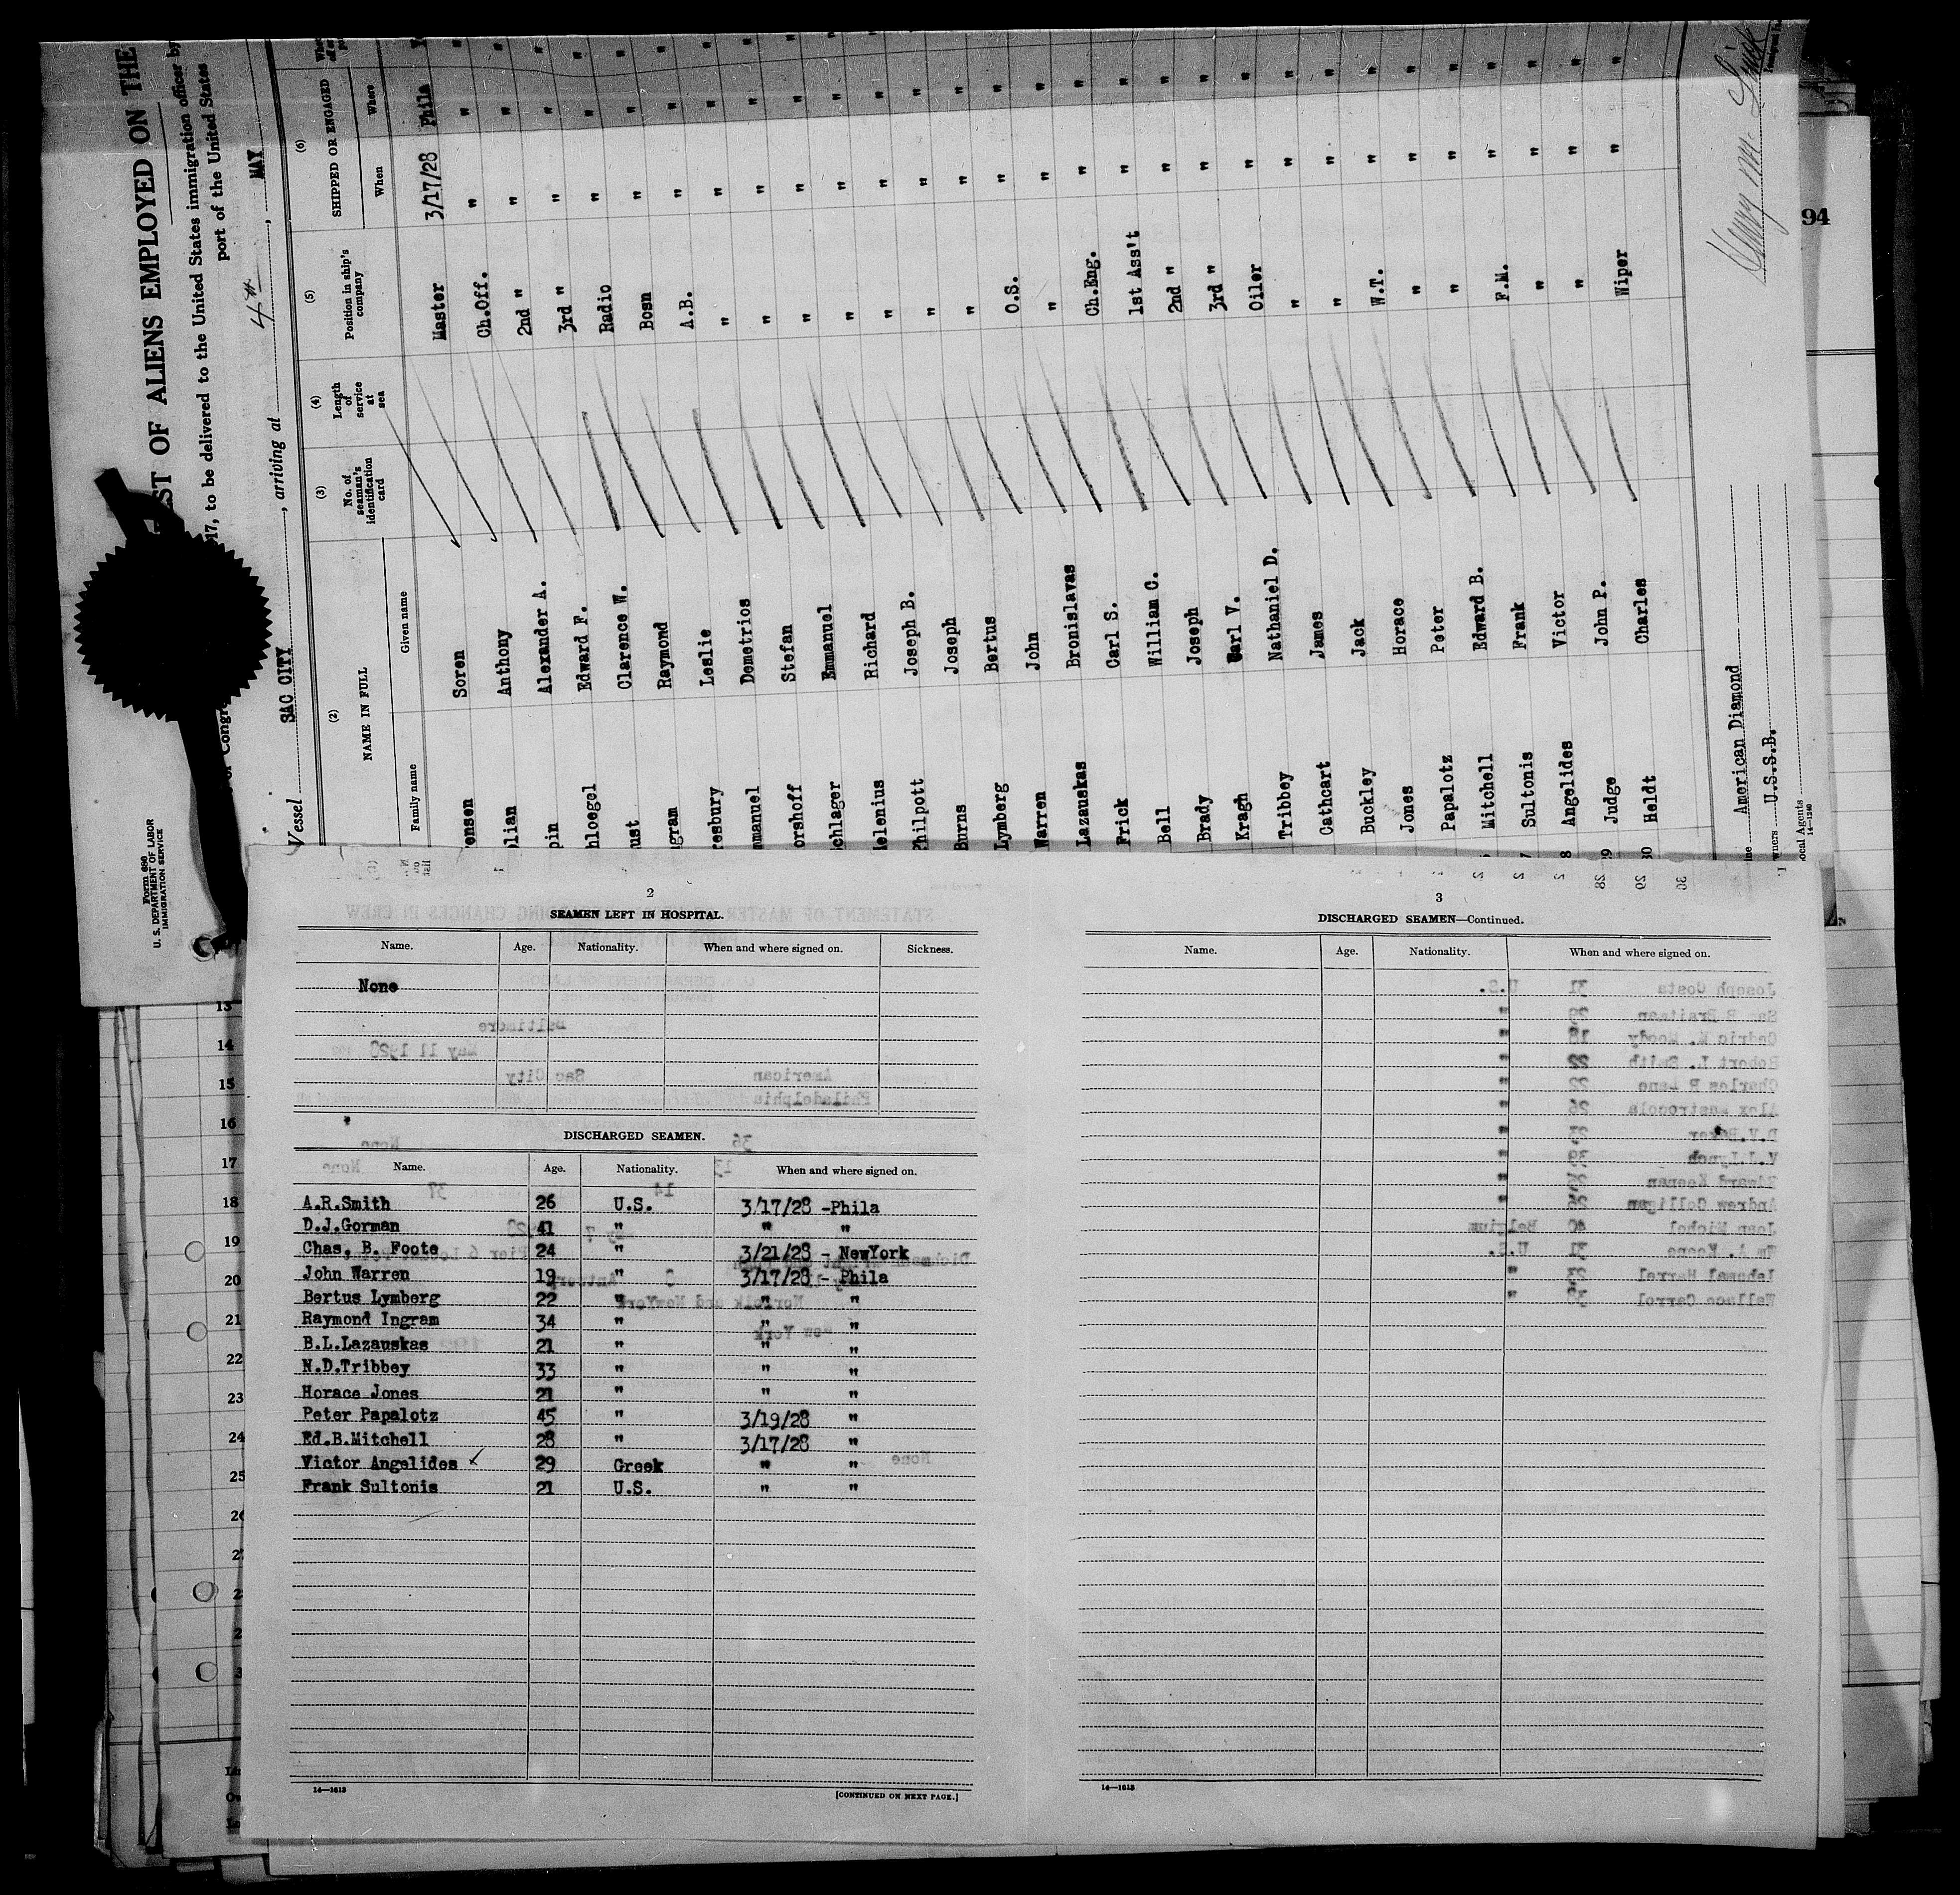 ST OF ALIENS EMPLOYED ON THE
17, to be delivered to the United States immigration officer by
port of the United States
Vessel SAC CITY, arriving at 4th, MAY
Form 680
U. S. DEPARTMENT OF LABOR
IMMIGRATION SERVICE
(2) (3) (4) (5) (6)
NAME IN FULL No. of seaman's identification card Length of service at sea Position in ship's company SHIPPED OR ENGAGED
Family name Given name When Where
ensen Soren Master 3/17/28 Phila
lian Anthony Ch.Off. " "
pin Alexander A. 2nd " " "
hloegel Edward F. 3rd " " "
ust Clarence W. Radio " "
gram Raymond Bosn " "
resbury Leslie A.B. " "
mmanuel Demetrios " " "
orshoff Stefan " " "
chlager Emmanuel " " "
elenius Richard " " "
Philpott Joseph B. " " "
Burns Joseph " " "
Lymberg Bertus " " "
Warren John O.S. " "
Lazauskas Bronislavas " " "
Frick Carl S. Ch.Eng. " "
Bell William C. 1st Ass't " "
Brady Joseph 2nd " " "
Kragh Carl V. 3rd " " "
Tribbey Nathaniel D. Oiler " "
Cathcart James " " "
Buckley Jack " " "
Jones Horace W.T. " "
Papalotz Peter " " "
Mitchell Edward B. " " "
Sultonis Frank F.M. " "
Angelides Victor " " "
Judge John P. " " "
Heldt Charles Wiper " "
American Diamond
wners U.S.S.B.
ocal Agents
14—1240
94
2
SEAMEN LEFT IN HOSPITAL.
Name. Age. Nationality. When and where signed on. Sickness.
None
DISCHARGED SEAMEN.
Name. Age. Nationality. When and where signed on.
A.R.Smith 26 U.S. 3/17/28 -Phila
D.J.Gorman 41 " " "
Chas. B. Foote 24 " 3/21/28 - NewYork
John Warren 19 " 3/17/28 - Phila
Bertus Lymberg 22 " " "
Raymond Ingram 34 " " "
B.L.Lazauskas 21 " " "
N.D.Tribbey 33 " " "
Horace Jones 21 " " "
Peter Papalotz 45 " 3/19/28 "
Ed.B.Mitchell 28 " 3/17/28 "
Victor Angelides 29 Greek " "
Frank Sultonis 21 U.S. " "
14—1613
[CONTINUED ON NEXT PAGE.]
3
DISCHARGED SEAMEN—Continued.
Name. Age. Nationality. When and where signed on.
14—1613
13
14
15
16
17
18
19
20
21
22
23
24
25